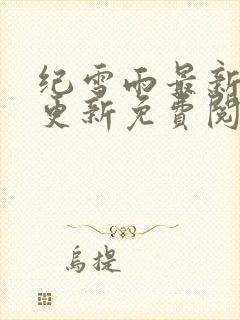 纪雪雨最新
更新免費閱
烏提